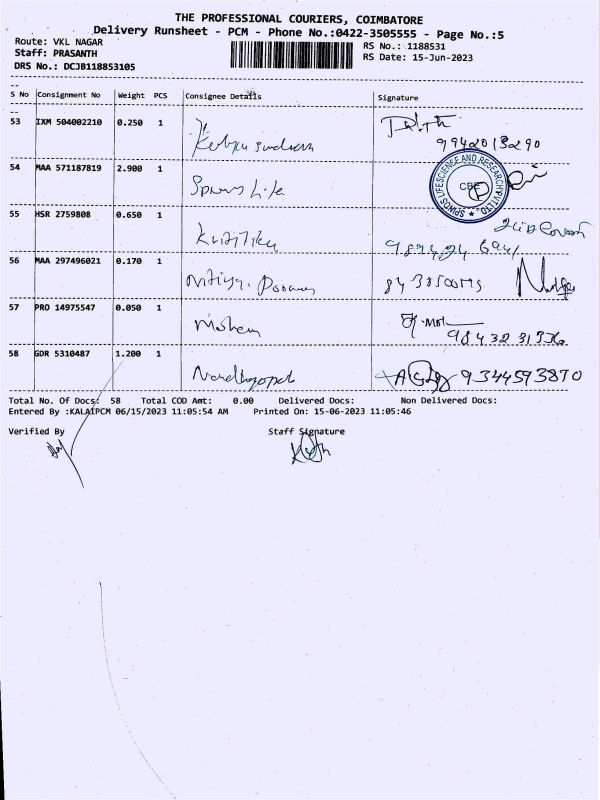 THE PROFESSIONAL COURIERS, COIMBATORE
Delivery Runsheet - PCM - Phone No.:0422-3505555 - Page No.:5
Route: VKL NAGAR
RS No.: 1188531
Staff: PRASANTH
RS Date: 15-Jun-2023
DRS No.: DCJB118853105
S No Consignment No Weight PCS Consignee Details Signature
53 IXM 504002210 0.250 1
9942013290
54 MAA 571187819 2.900 1
SPINOS LIFESCIENCE AND RESEARCH PVT LTD.
CBE
55 HSR 2759808 0.650 1
56 MAA 297496021 0.170 1
57 PRO 14975547 0.050 1 Mohan
58 GDR 5310487 1.200 1 Nandhagopal
9344593870
Total No. Of Docs: 58 Total COD Amt: 0.00 Delivered Docs: Non Delivered Docs:
Entered By :KALAIPCM 06/15/2023 11:05:54 AM Printed On: 15-06-2023 11:05:46
Verified By Staff Signature